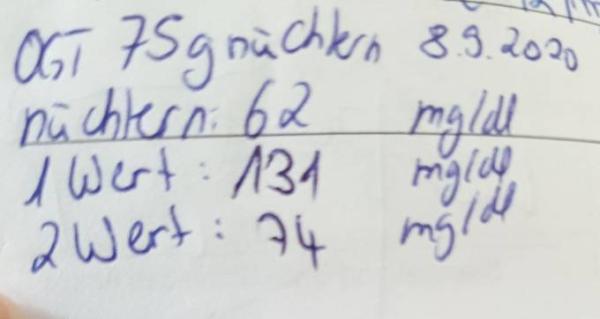 OGT 75g nüchtern 8.9.2020
nüchtern: 62 mg/dl
1 Wert: 131 mg/dl
2 Wert: 74 mg/dl